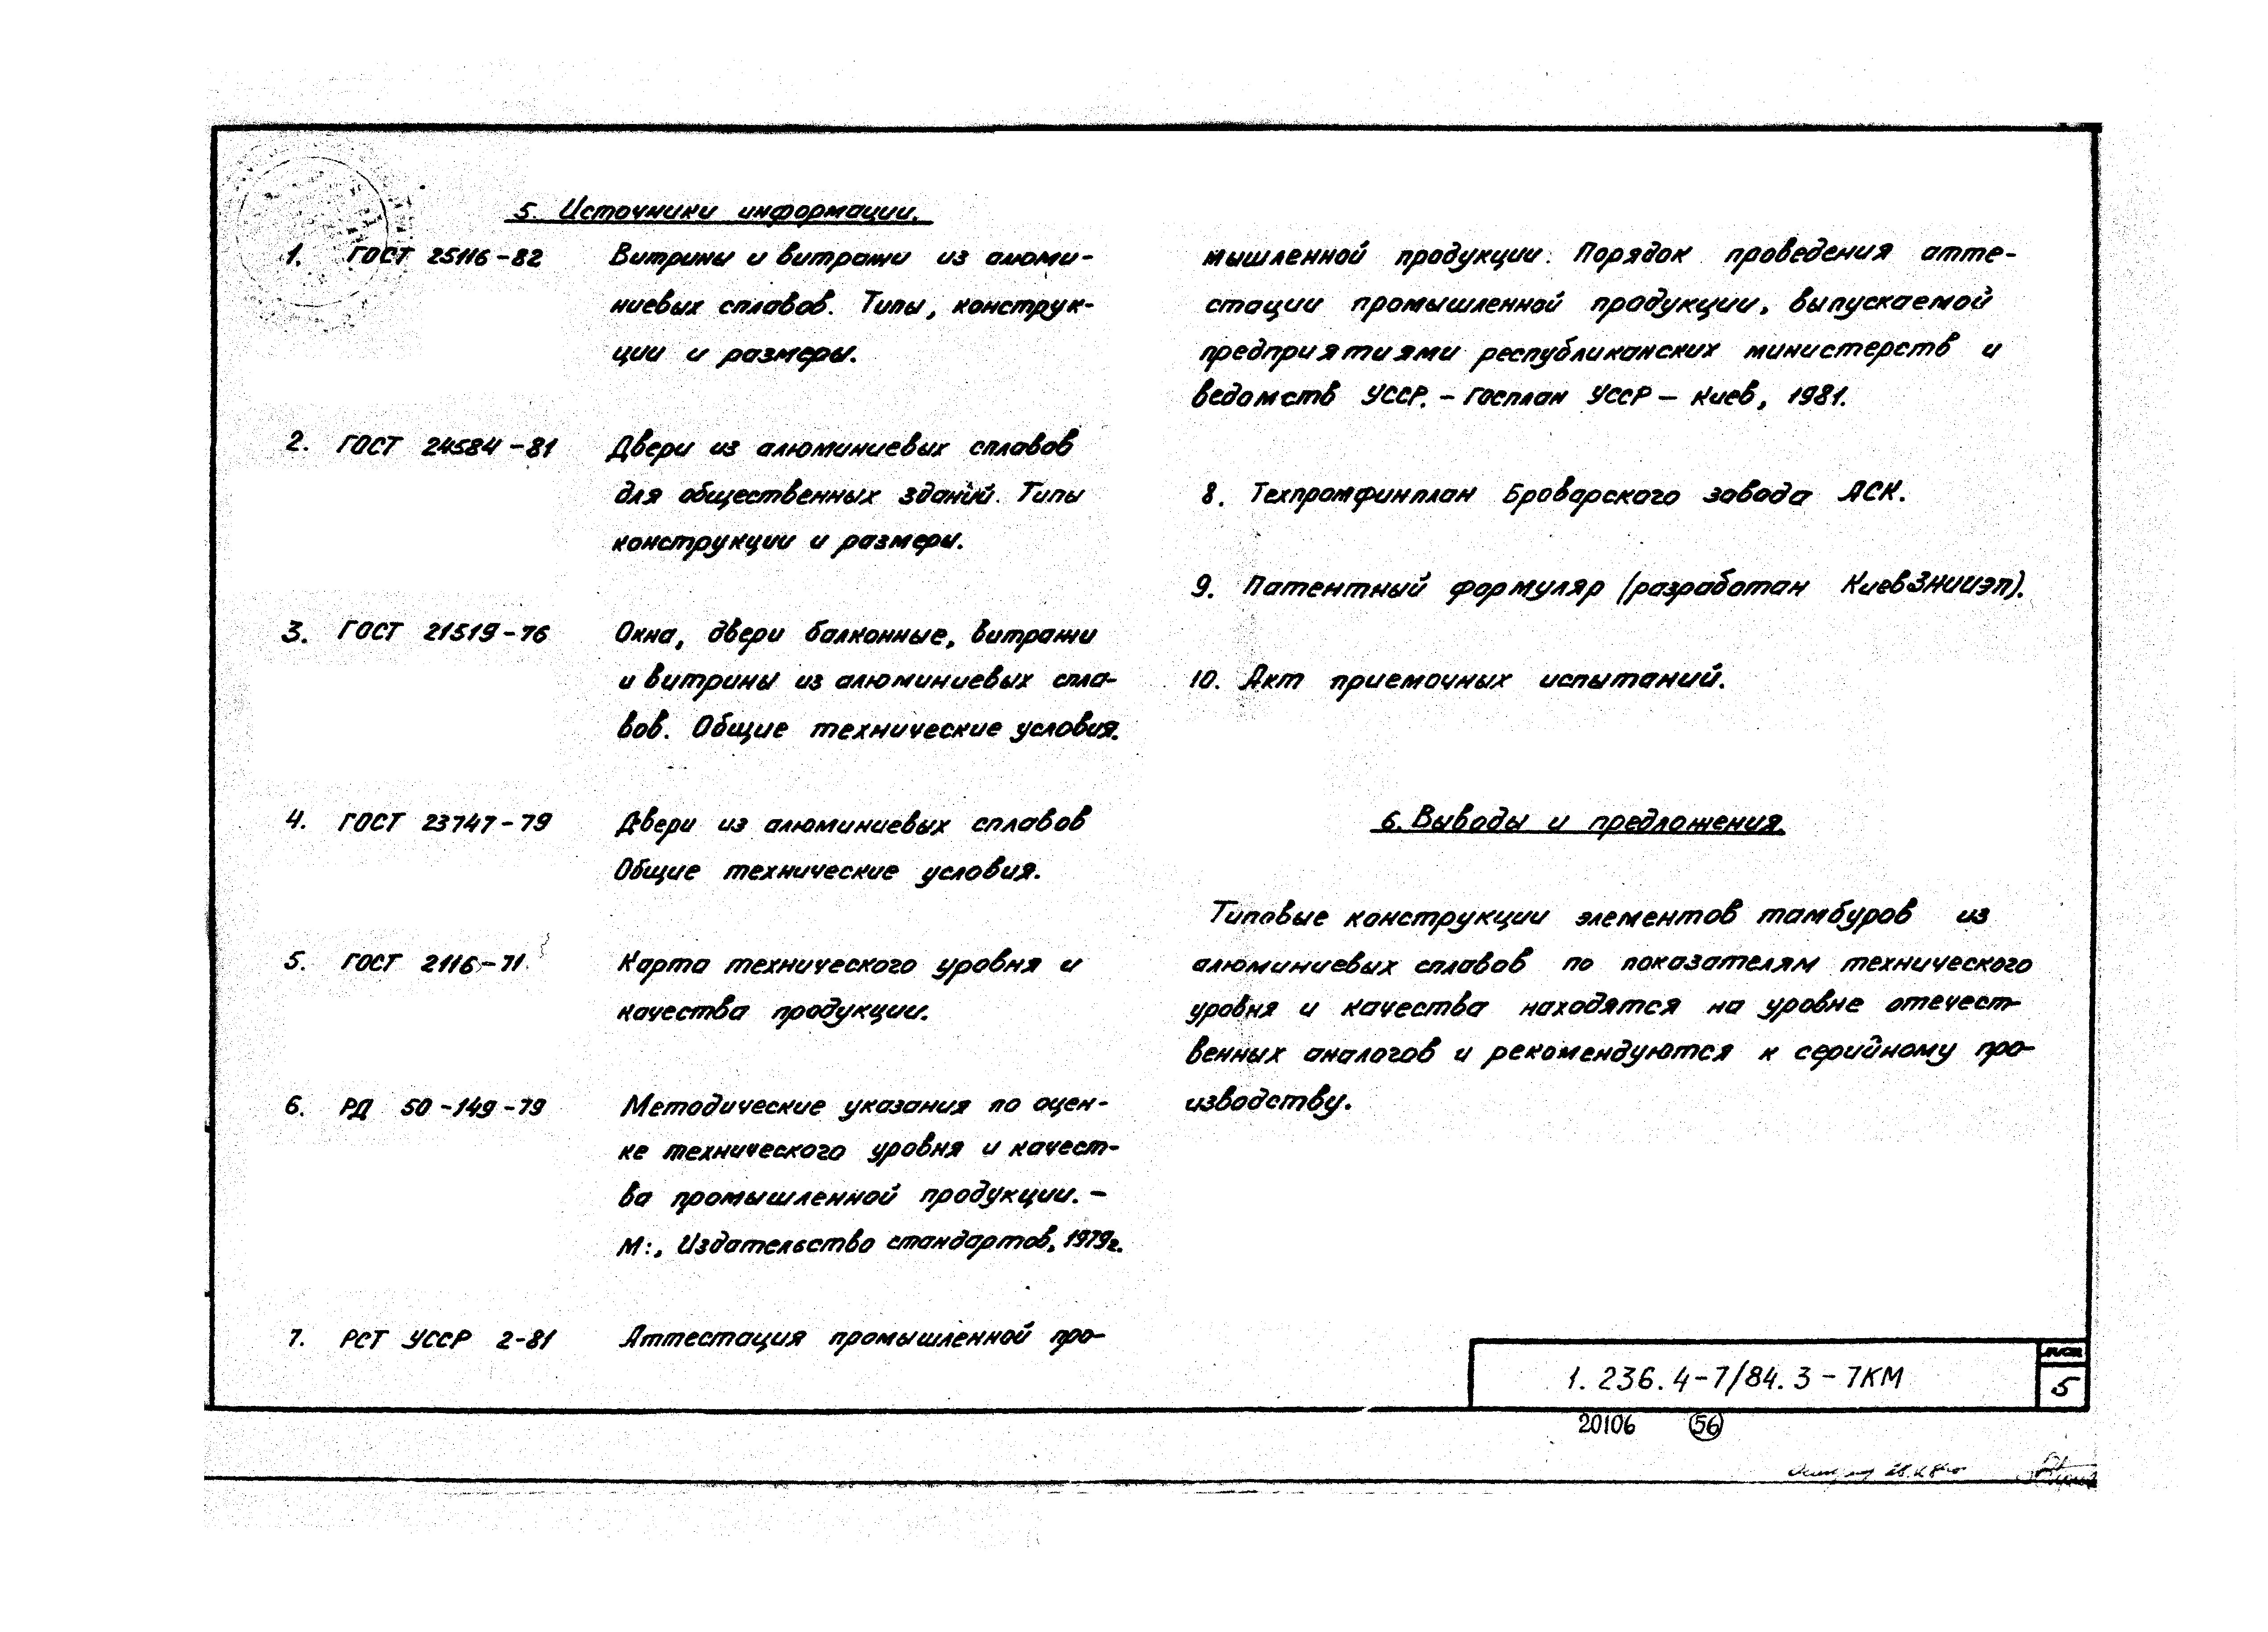 5. Источники информации.
1. ГОСТ 25116-82 Витрины и витражи из алюми-
ниевых сплавов. Типы, конструк-
ции и размеры.
2. ГОСТ 24584-81 Двери из алюминиевых сплавов
для общественных зданий. Типы
конструкции и размеры.
3. ГОСТ 21519-76 Окна, двери балконные, витражи
и витрины из алюминиевых спла-
вов. Общие технические условия.
4. ГОСТ 23747-79 Двери из алюминиевых сплавов
Общие технические условия.
5. ГОСТ 2116-71 Карта технического уровня и
качества продукции.
6. РД 50-149-79 Методические указания по оцен-
ке технического уровня и качест-
ва промышленной продукции. -
М:, Издательство стандартов, 1979г.
7. РСТ УССР 2-81 Аттестация промышленной про-
мышленной продукции. Порядок проведения атте-
стации промышленной продукции, выпускаемой
предприятиями республиканских министерств и
ведомств УССР. - Госплан УССР - Киев, 1981.
8. Техпромфинплан Броварского завода АСК.
9. Патентный формуляр (разработан КиевЗНИИЭП).
10. Акт приемочных испытаний.
6. Выводы и предложения.
Типовые конструкции элементов тамбуров из
алюминиевых сплавов по показателям технического
уровня и качества находятся на уровне отечест-
венных аналогов и рекомендуются к серийному про-
изводству.
1.236.4-7/84.3-7КМ
лист
5
20106 56